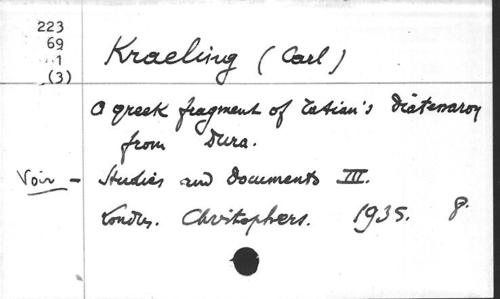 223
69
1
(3)
Kraeling (Carl)
A greek fragment of Tatian's Diatessaron
from Dura.
Voir - Studies and Documents III.
Londres. Christophers. 1935. 8º.